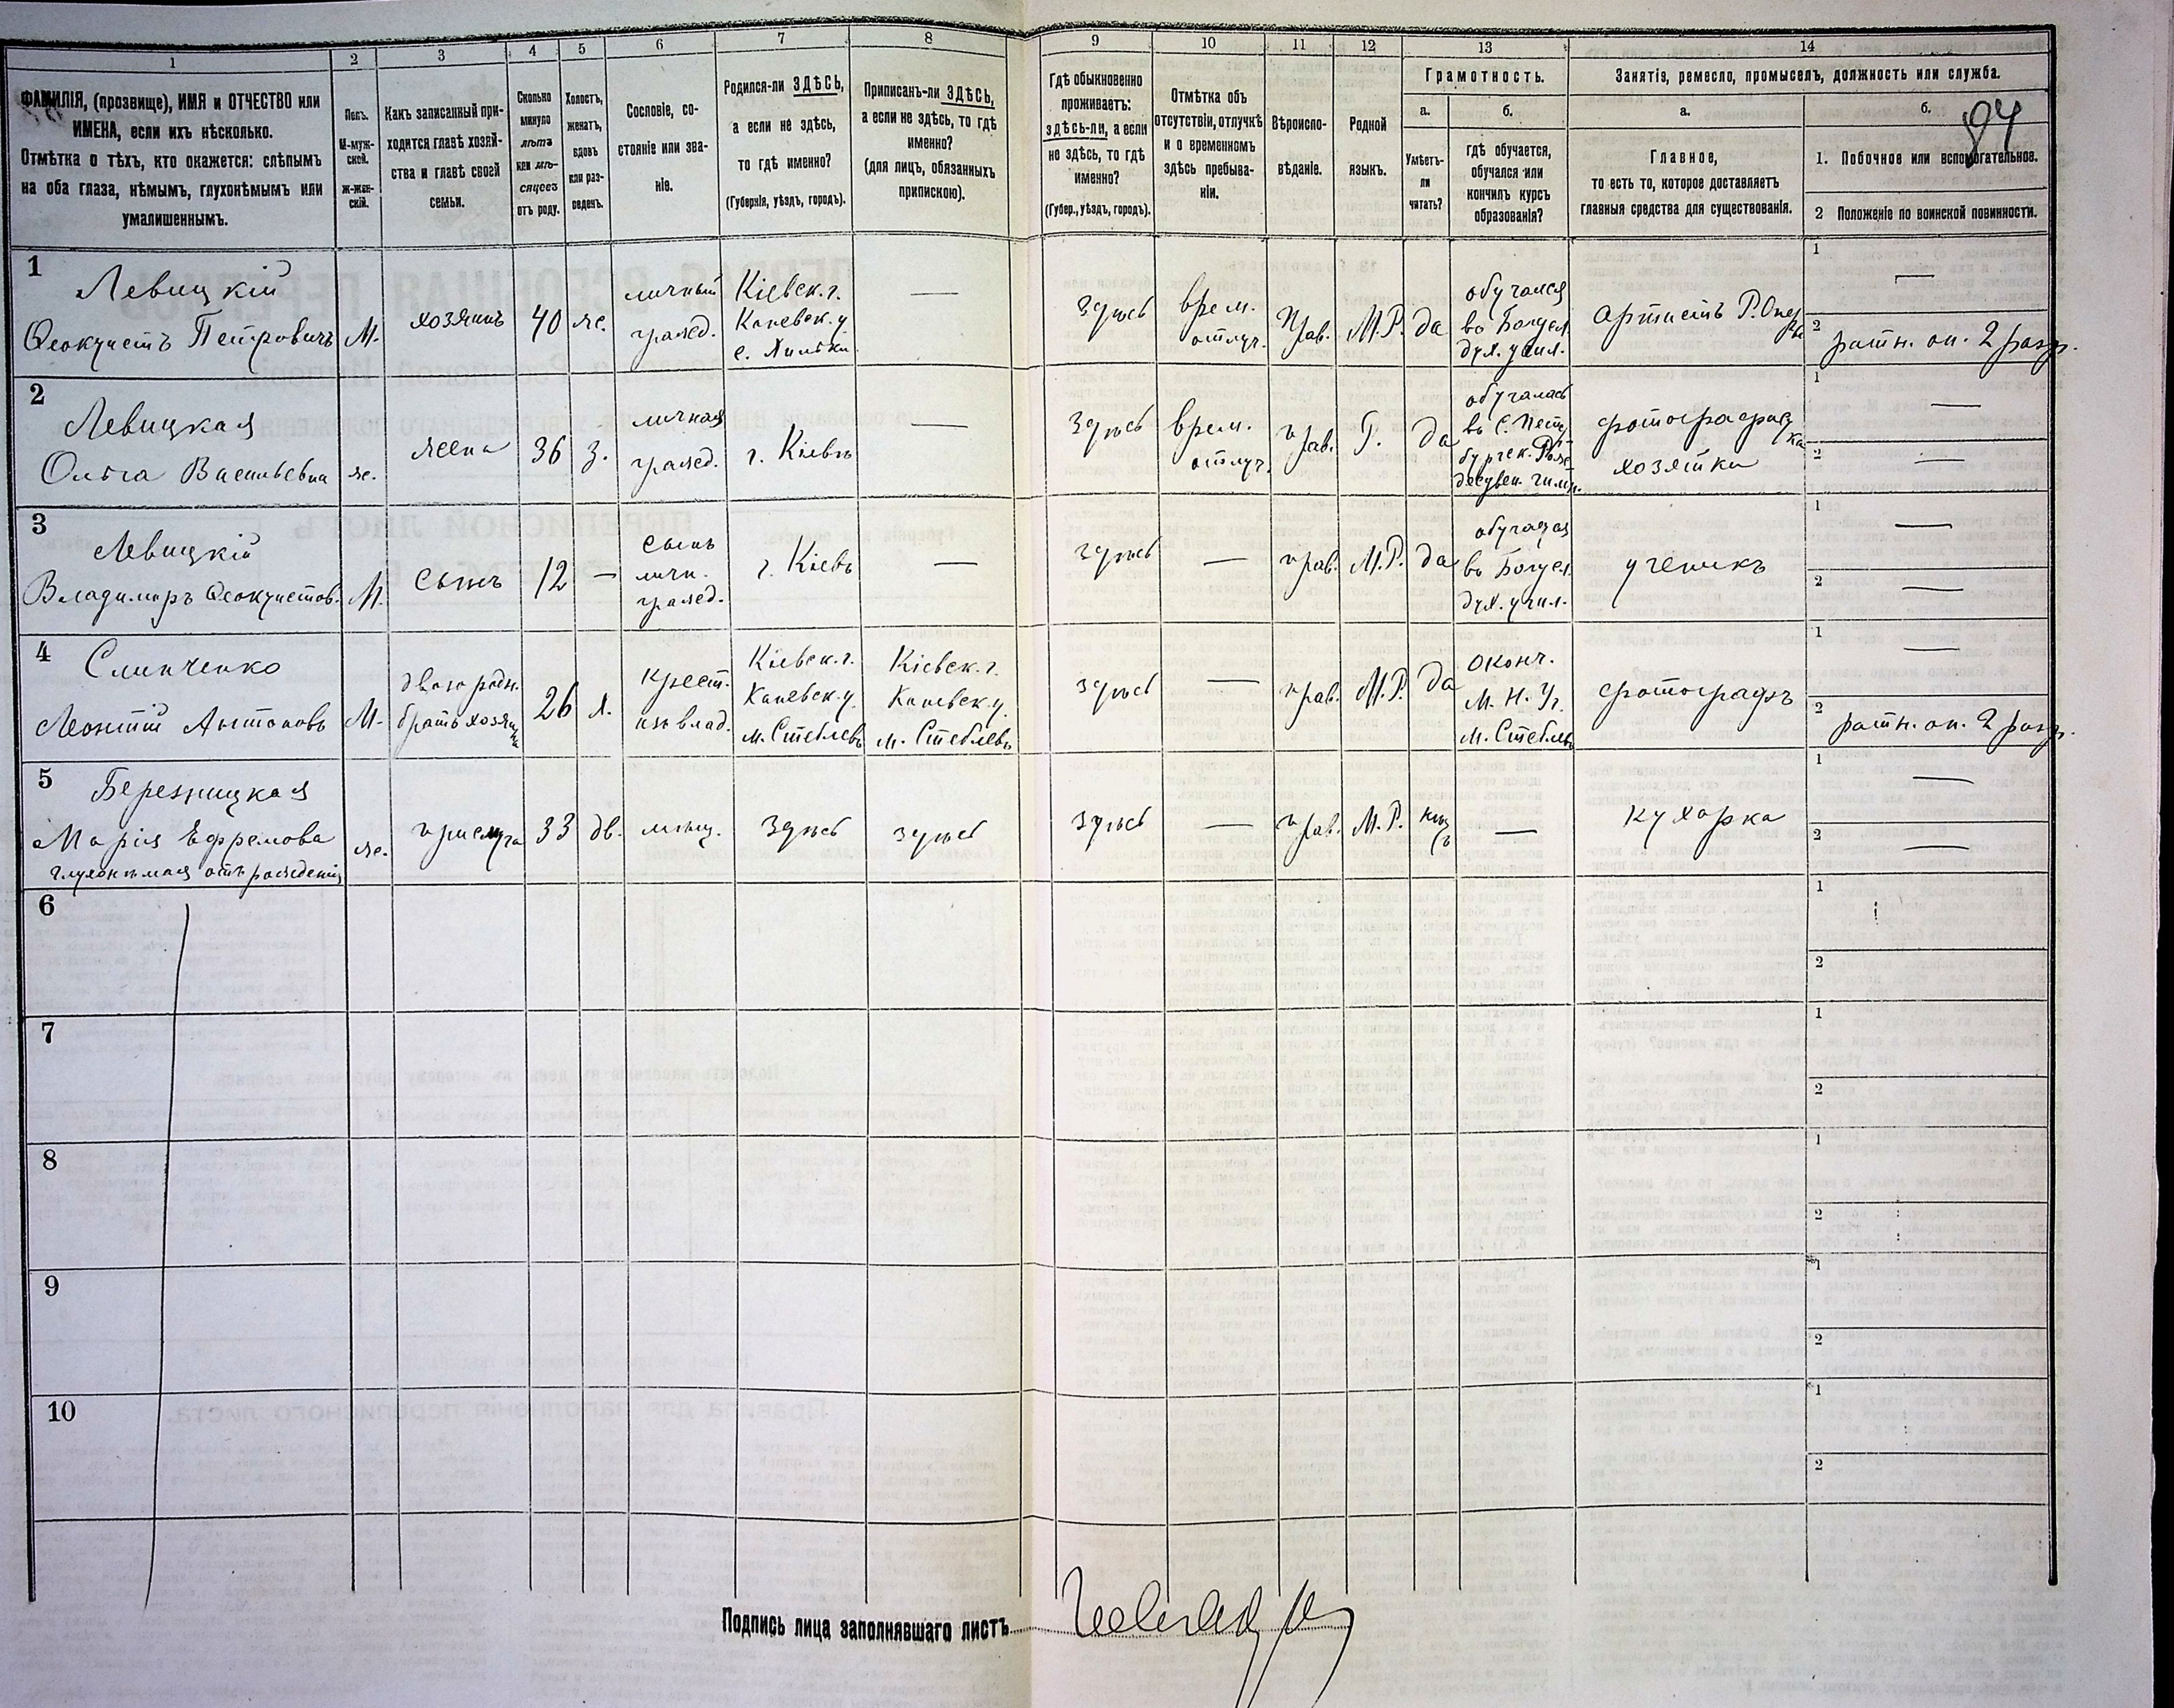 1 2 3 4 5 6 7 8 9 10 11 12 13 14
ФАМИЛІЯ, (прозвище), ИМЯ и ОТЧЕСТВО или
ИМЕНА, если ихъ нѣсколько.
Отмѣтка о тѣхъ, кто окажется: слѣпымъ
на оба глаза, нѣмымъ, глухонѣмымъ или
умалишеннымъ.
Полъ.
М-муж-
ской.
Ж-жен-
скій.
Какъ записанный при-
ходится главѣ хозяй-
ства и главѣ своей
семьи.
Сколько
минуло
лѣтъ
или мѣ-
сяцевъ
отъ роду.
Холостъ,
женатъ,
вдовъ
или раз-
веденъ.
Сословіе, со-
стояніе или зва-
ніе.
Родился-ли ЗДѢСЬ,
а если не здѣсь,
то гдѣ именно?
(Губернія, уѣздъ, городъ).
Приписанъ-ли ЗДѢСЬ,
а если не здѣсь, то гдѣ
именно?
(для лицъ, обязанныхъ
припискою).
Гдѣ обыкновенно
проживаетъ:
здѣсь-ли, а если
не здѣсь, то гдѣ
именно?
(Губер., уѣздъ, городъ).
Отмѣтка объ
отсутствіи, отлучкѣ
и о временномъ
здѣсь пребыва-
ніи.
Вѣроиспо-
вѣданіе.
Родной
языкъ.
Грамотность.
а.
Умѣетъ-
ли
читать?
б.
гдѣ обучается,
обучался или
кончилъ курсъ
образованія?
Занятія, ремесло, промыселъ, должность или служба.
а.
Главное,
то есть то, которое доставляетъ
главныя средства для существованія.
б.
94
1. Побочное или вспомогательное.
2 Положеніе по воинской повинности.
1
Левицкій
Ѳеоктистъ Петровичъ
М.
хозяинъ
40
ж.
личный
гражд.
Кіевск. г.
Каневск. у.
с.
—
здѣсь
врем.
отлуч.
Прав.
М.Р.
да
обучался
въ Богусл.
дух. учил.
Артистъ Р. Опе
ры
1
—
2
ратн. оп. 2 разр.
2
Левицкая
Ольга Васильевна
ж.
жена
36
з.
личная
гражд.
г. Кіевъ
—
здѣсь
врем.
отлуч.
прав.
Р.
да
обучалась
въ С. Петер
бургск. Рож
дествен. гимн.
фотографщ
ка
хозяйка
1
—
2
—
3
Левицкій
Владимиръ Ѳеоктистов.
М.
сынъ
12
—
сынъ
личн.
гражд.
г. Кіевъ
—
здѣсь
—
прав.
М.Р.
да
обучается
въ Богусл.
дух. учил.
ученикъ
1
—
2
—
4
Слипченко
Леонтій Антоновъ
М.
двоюродн.
братъ хозяина
26
х.
крест.
изъ влад.
Кіевск. г.
Каневск. у.
м. Стеблевъ
Кіевск. г.
Каневск. у.
м. Стеблевъ
здѣсь
—
прав.
М.Р.
да
оконч.
М. Н. Уч.
м. Стеблевъ
фотографъ
1
—
2
ратн. оп. 2 разр.
5
Березницкая
Марія Ефремова
глухонѣмая отъ рожденія
ж.
прислуга
33
дв.
мѣщ.
здѣсь
здѣсь
здѣсь
—
прав.
М.Р.
нѣ
тъ
—
кухарка
1
—
2
—
6
1
2
7
1
2
8
1
2
9
1
2
10
1
2
Подпись лица заполнявшаго листъ